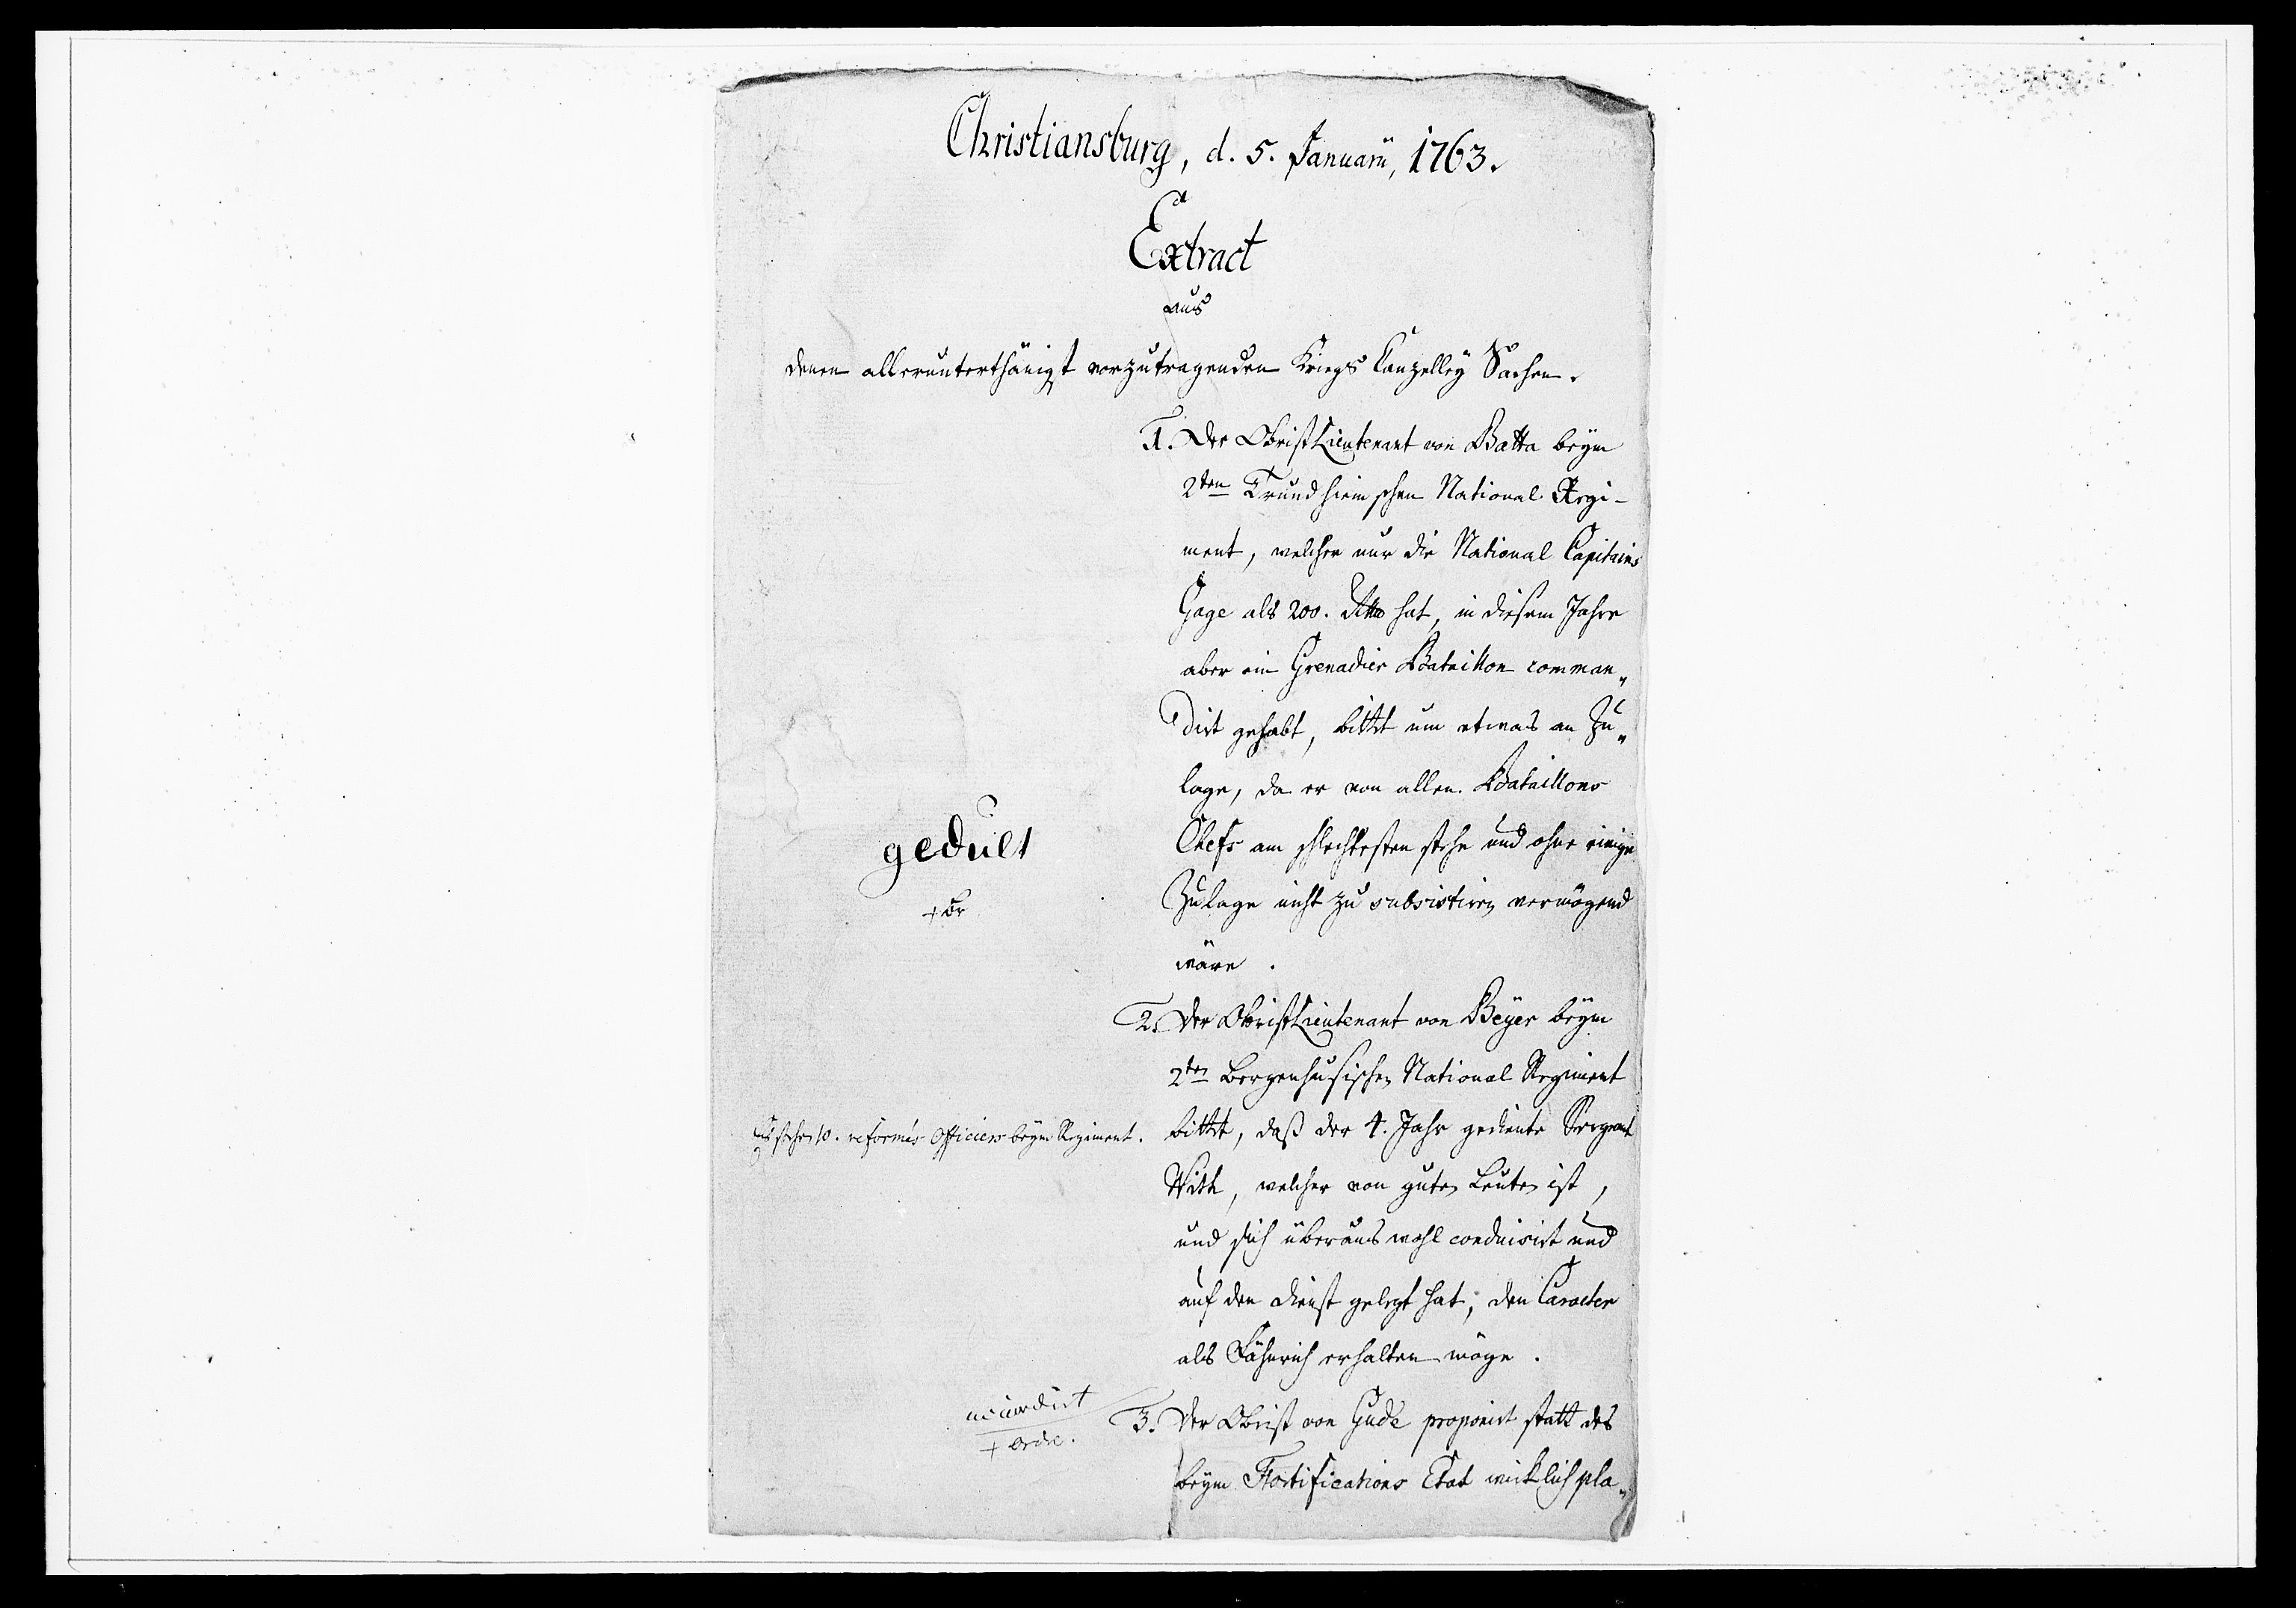 Christiansburg, d. 5. Januarii, 1763.
Extract
aus
denen allerunterthänigst vorzutragenden Kriegs Canzelley Sachen.
1. Der ObristLieutenant von Batta beym
2ten Trundhiemschen National Regi-
ment, welcher nur die National Capitains
Gage als 200. Rthlr hat, in diesem Jahre
aber ein Grenadier Bataillon comman„
dirt gehabt, bittet um etwas an Zu„
lage, da er von allen Bataillons
Chefs am schlechtesten stehe und ohne einige
Zulage nicht zu subsistiren vermögend
wäre.
gedult
2. Der ObristLieutenant von Beyer beym
2ten Bergenhusischen National Regiment
bittet, daß der 4. Jahr gediente Sergeant
With, welcher von guten Leuten ist,
und sich überaus wohl conduisirt und
auf den Dienst gelegt hat, den Caracter
als Fähnrich erhalten möge.
Es stehen 10. reformés Officiers beym Regiment.
3. Der Obrist von Gude proponirt statt des
beym Fortifications Etat wircklich pla„
accordirt
+ ordr.